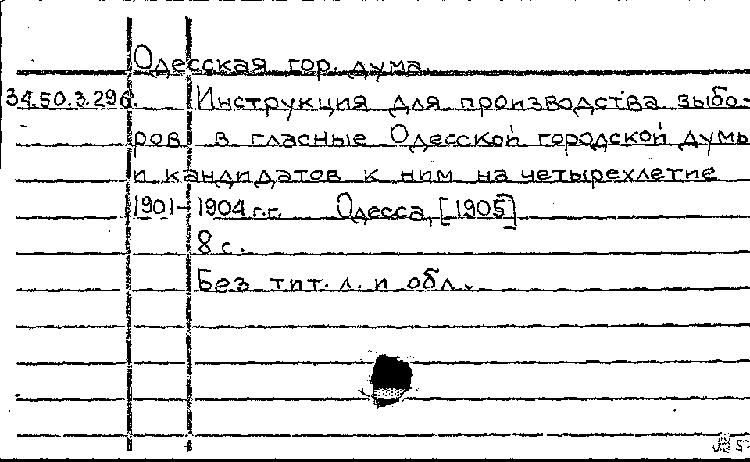 Одесская гор. дума.
34.50.3.296. Инструкция для производства выбо-
ров в гласные Одесской городской думы
и кандидатов к ним на четырехлетие
1901-1904 г.г. Одесса, [1905]
8 с.
Без тит. л. и обл.